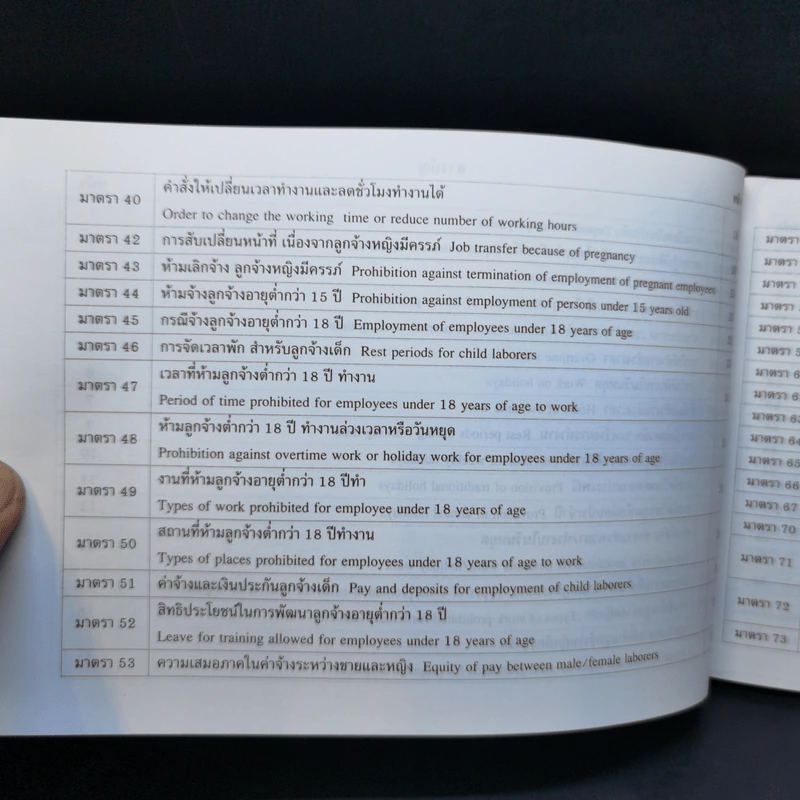 มาตรา 40
คำสั่งให้เปลี่ยนเวลาทำงานและลดชั่วโมงทำงานได้
Order to change the working time or reduce number of working hours
มาตรา 42 การสับเปลี่ยนหน้าที่ เนื่องจากลูกจ้างหญิงมีครรภ์ Job transfer because of pregnancy
มาตรา 43 ห้ามเลิกจ้าง ลูกจ้างหญิงมีครรภ์ Prohibition against termination of employment of pregnant employees
มาตรา 44 ห้ามจ้างลูกจ้างอายุต่ำกว่า 15 ปี Prohibition against employment of persons under 15 years old
มาตรา 45 กรณีจ้างลูกจ้างอายุต่ำกว่า 18 ปี Employment of employees under 18 years of age
มาตรา 46 การจัดเวลาพัก สำหรับลูกจ้างเด็ก Rest periods for child laborers
มาตรา 47
เวลาที่ห้ามลูกจ้างต่ำกว่า 18 ปี ทำงาน
Period of time prohibited for employees under 18 years of age to work
มาตรา 48
ห้ามลูกจ้างต่ำกว่า 18 ปี ทำงานล่วงเวลาหรือวันหยุด
Prohibition against overtime work or holiday work for employees under 18 years of age
มาตรา 49
งานที่ห้ามลูกจ้างอายุต่ำกว่า 18 ปีทำ
Types of work prohibited for employee under 18 years of age
มาตรา 50
สถานที่ห้ามลูกจ้างต่ำกว่า 18 ปีทำงาน
Types of places prohibited for employees under 18 years of age to work
มาตรา 51 ค่าจ้างและเงินประกันลูกจ้างเด็ก Pay and deposits for employment of child laborers
มาตรา 52
สิทธิประโยชน์ในการพัฒนาลูกจ้างอายุต่ำกว่า 18 ปี
Leave for training allowed for employees under 18 years of age
มาตรา 53 ความเสมอภาคในค่าจ้างระหว่างชายและหญิง Equity of pay between male/female laborers
มาตรา
มาตรา
มาตรา
มาตรา
มาตรา
มาตรา
มาตรา
มาตรา
มาตรา
มาตรา 64
มาตรา 65
มาตรา 66
มาตรา 67
มาตรา 70
มาตรา 71
มาตรา 72
มาตรา 73